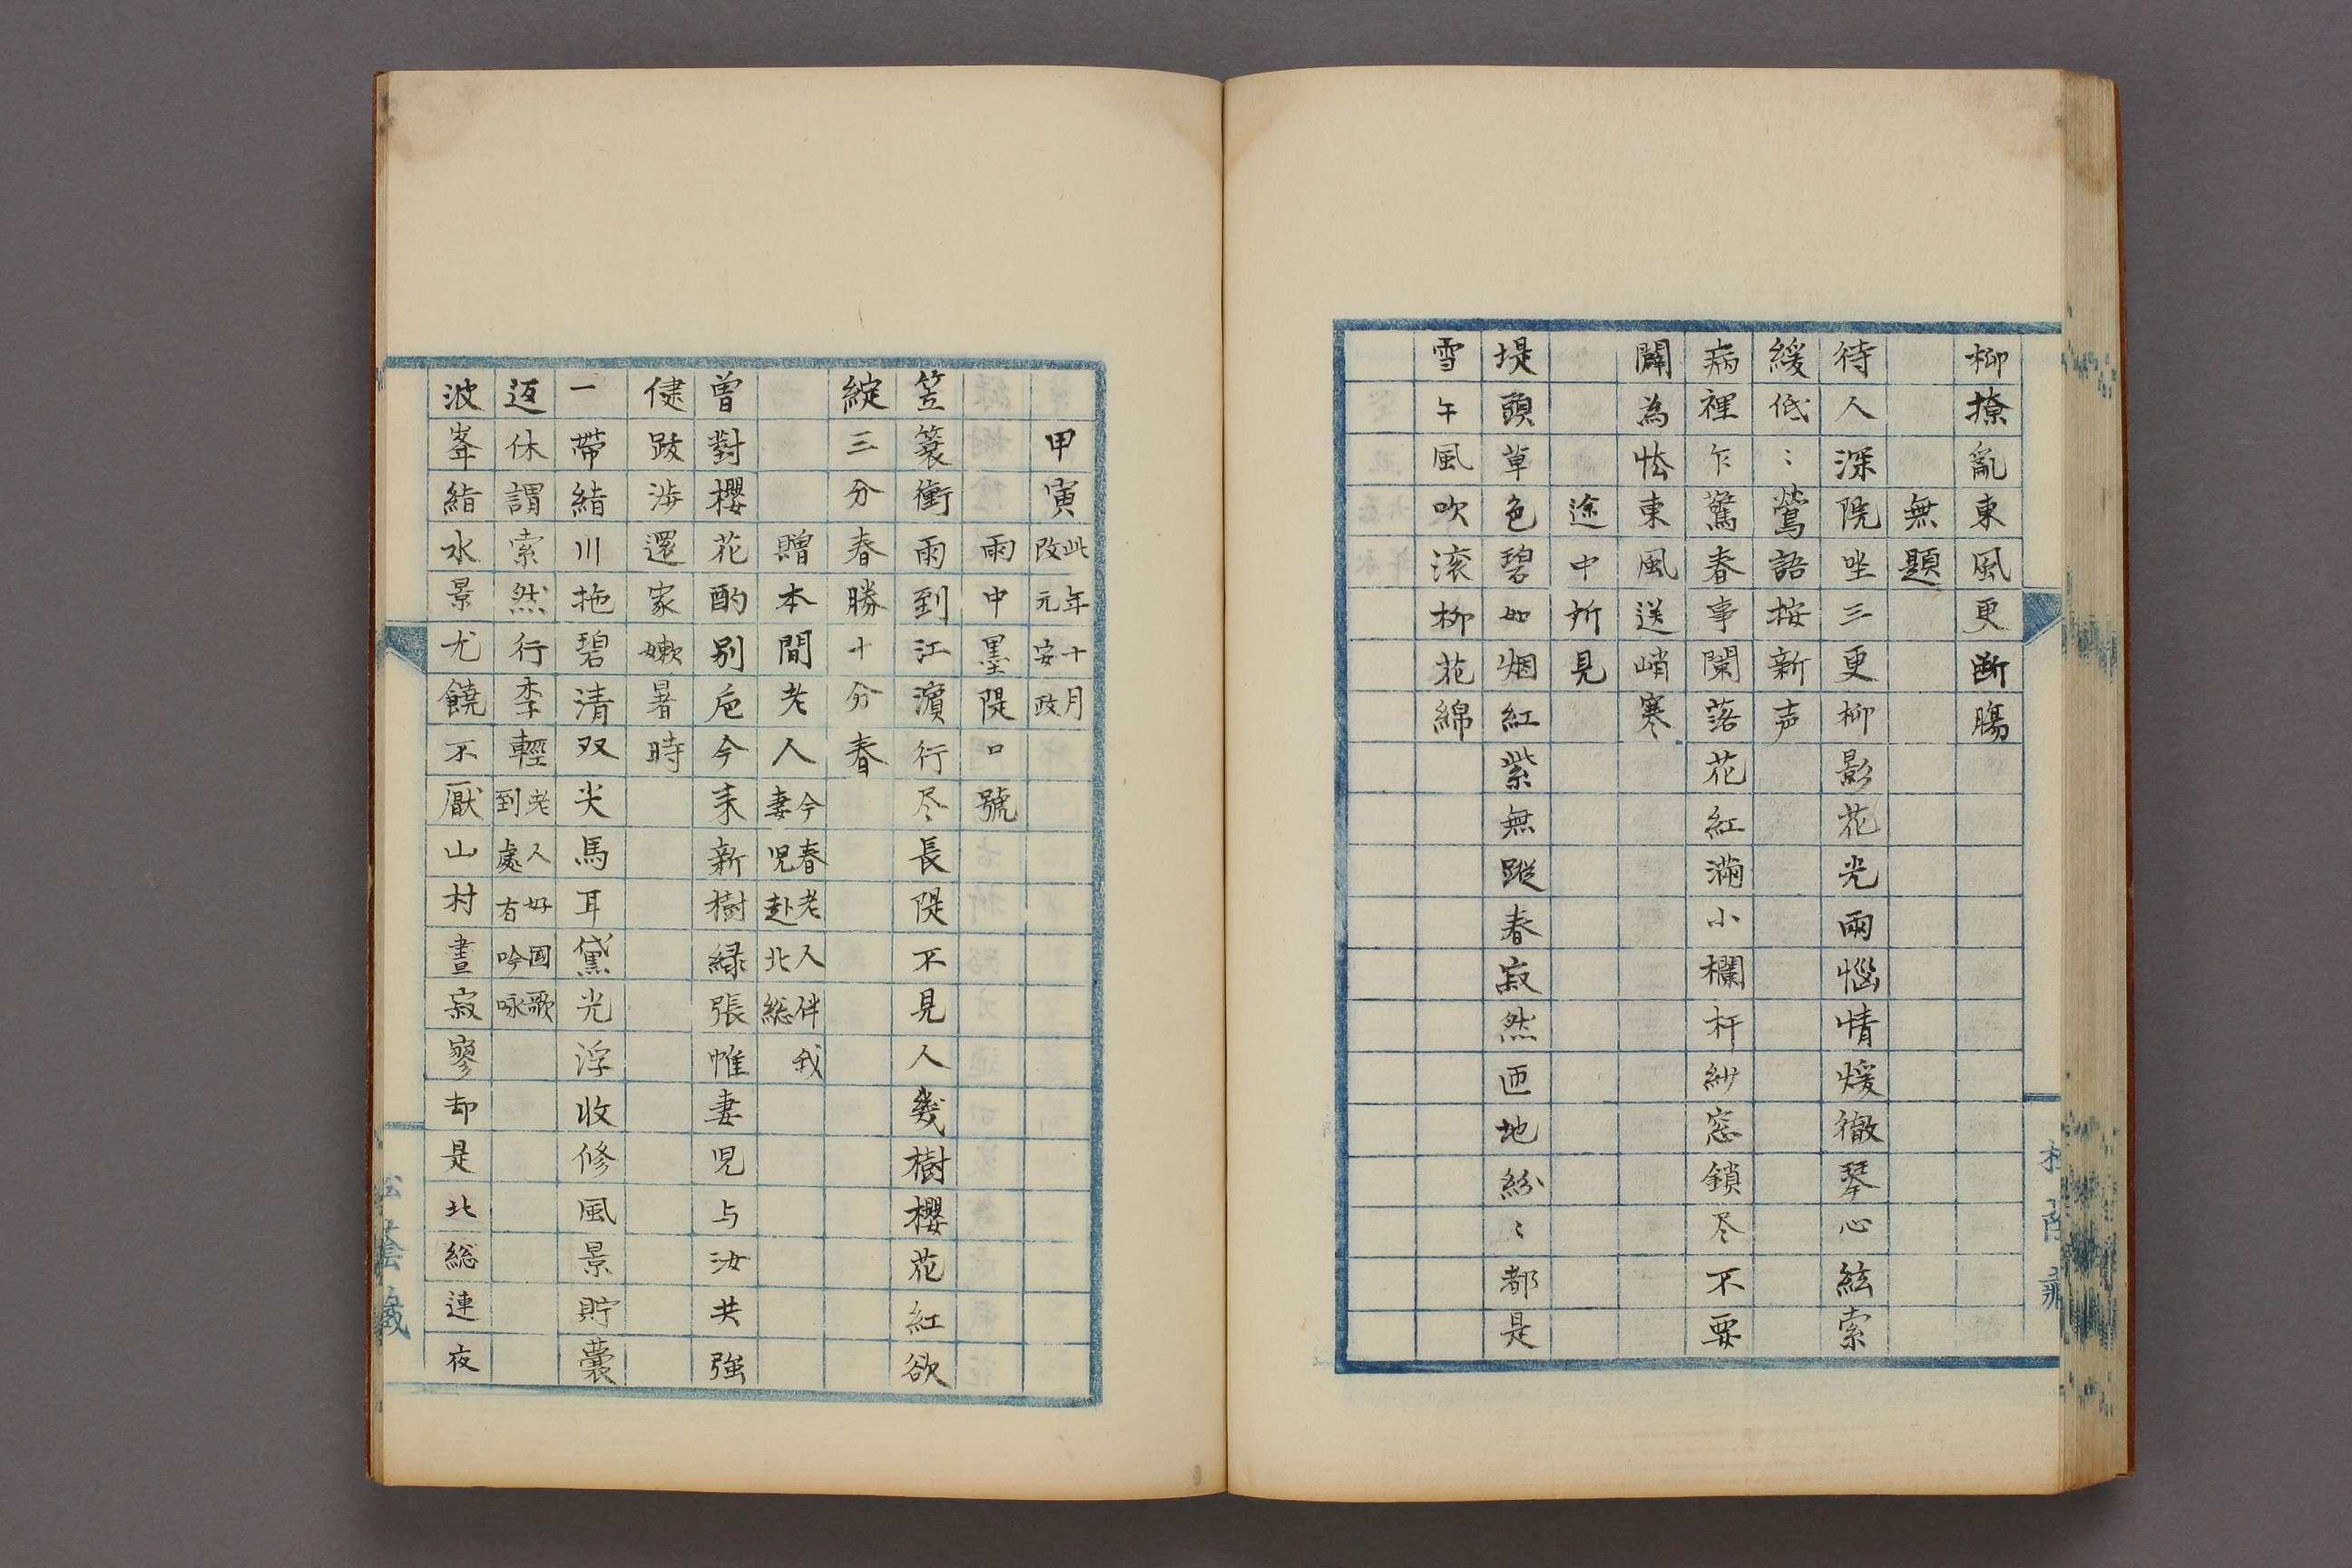 柳撩亂東風更断腸
無題
待人深院坐三更柳影花光兩惱情煖徹琴心絃索
緩低〻鶯語按新声
病裡乍驚春事闌落花紅滿小欄杆紗窓鎖尽不要
闢為怯東風送峭寒
途中所見
堤頭草色碧如烟紅紫無蹤春寂然匝地紛〻都是
雪午風吹滚柳花綿
甲寅
此年十月
改元安政
雨中墨隄口號
笠簑衝雨到江濵行尽長隄不見人幾樹櫻花紅欲
綻三分春勝十分春
贈本間老人
今春老人伴我
妻児赴北総
曽對櫻花酌别巵今来新樹緑張帷妻児与汝共強
健跋渉還家嫰暑時
一帶絹川拖碧清双尖馬耳黛光浮收修風景貯囊
返休謂索然行李輕
老人好國歌
到處有吟咏
波峯絹水景尤饒不厭山村晝寂寥却是北総連夜